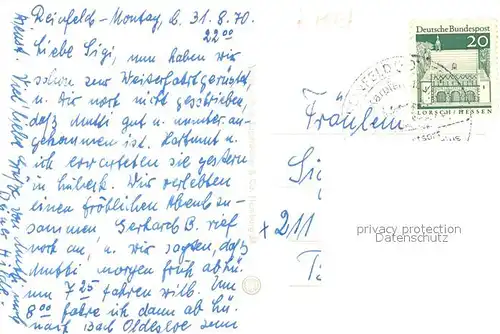 Reinfeld - Montag, d. 31.8.70.
22 00
Liebe Sigi, nun haben wir
schon zur Weiterfahrt gerüstet
u. Dir noch nicht geschrieben,
daß Mutti gut u. munter an-
gekommen ist. Hartmut u.
ich erwarteten sie gestern
in Lübeck. Wir verlebten
einen fröhlichen Abend zu-
sammen. Gerhard B. rief
noch an, u. wir sagten, daß
Mutti morgen früh ab Lü.
um 7 25 fahren will. Um
8 00 fahre ich dann ab Lü.
nach Bad Oldesloe zum
Dienst. Viel liebe Grüße von Mutti, auch
Deutsche Bundespost
20
LORSCH/HESSEN
Fräulein
Si
+ 211
T
privacy protection
Datenschutz